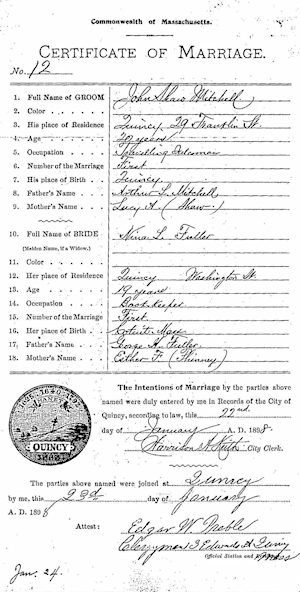 Commonwealth of Massachusetts.
CERTIFICATE OF MARRIAGE.
No. 12
1. Full Name of GROOM John Shaw Mitchell
2. Color
3. His place of Residence Quincy, 29 Franklin St.
4. Age 20 years
5. Occupation Salesman
6. Number of the Marriage First
7. His place of Birth Quincy
8. Father's Name Arthur L. Mitchell
9. Mother's Name Lucy A. (Shaw)
10. Full Name of BRIDE Nina L. Fuller
(Maiden Name, if a Widow.)
11. Color
12. Her place of Residence Quincy Washington St.
13. Age 19 years
14. Occupation Book keeper
15. Number of the Marriage First
16. Her place of Birth Cotuit Mass
17. Father's Name George H. Fuller
18. Mother's Name Esther F.
QUINCY
The Intentions of Marriage by the parties above
named were duly entered by me in Records of the City of
Quincy, according to law, this 22nd
day of January A. D. 1898
Harrison A. Keith City Clerk.
The parties above named were joined at Quincy
by me, this 23d day of January
A. D. 1898
Attest: Edgar W. Noble
Clergyman 3 Edwards St Quincy
Official Station and
Mass
Jan. 24.